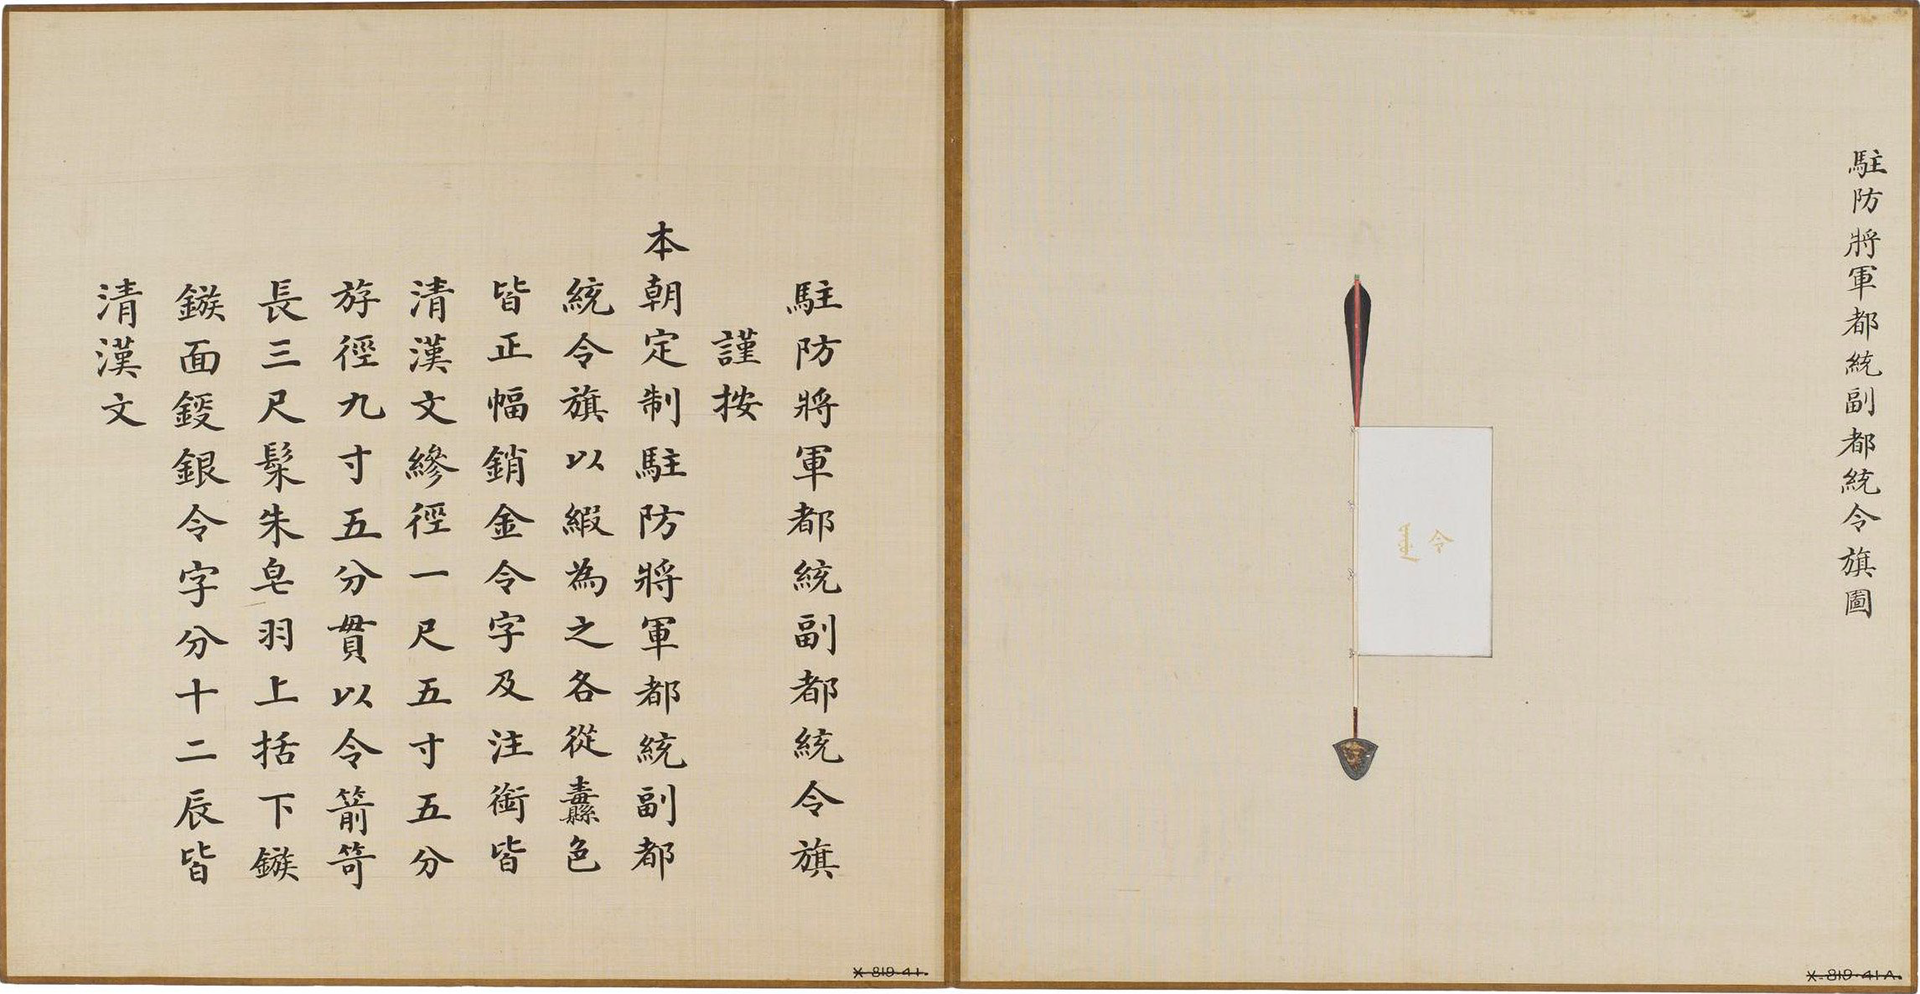 駐防將軍都統副都統令旗圖
令
X-819-41A.
駐防將軍都統副都統令旗
謹按
本朝定制駐防將軍都統副都
統令旗以緞為之各從纛色
皆正幅銷金令字及注銜皆
清漢文縿徑一尺五寸五分
斿徑九寸五分貫以令箭笴
長三尺髹朱皂羽上括下鏃
鏃面鋄銀令字分十二辰皆
清漢文
X-819-41.